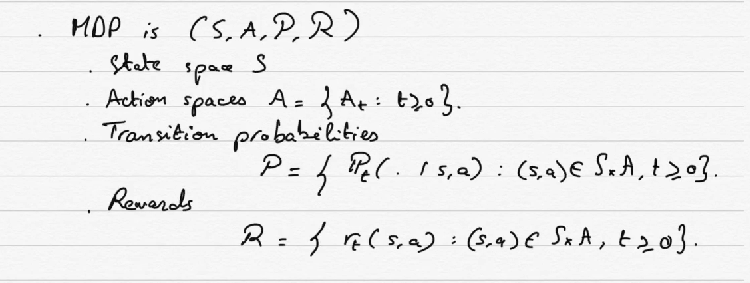 . MDP is (S, A, P, R)
. State space S
. Action spaces A = { A_t : t ≥ 0 }.
. Transition probabilities
P = { P_t( . | s, a) : (s, a) ∈ S × A, t ≥ 0 }.
. Rewards
R = { r_t(s, a) : (s, a) ∈ S × A, t ≥ 0 }.